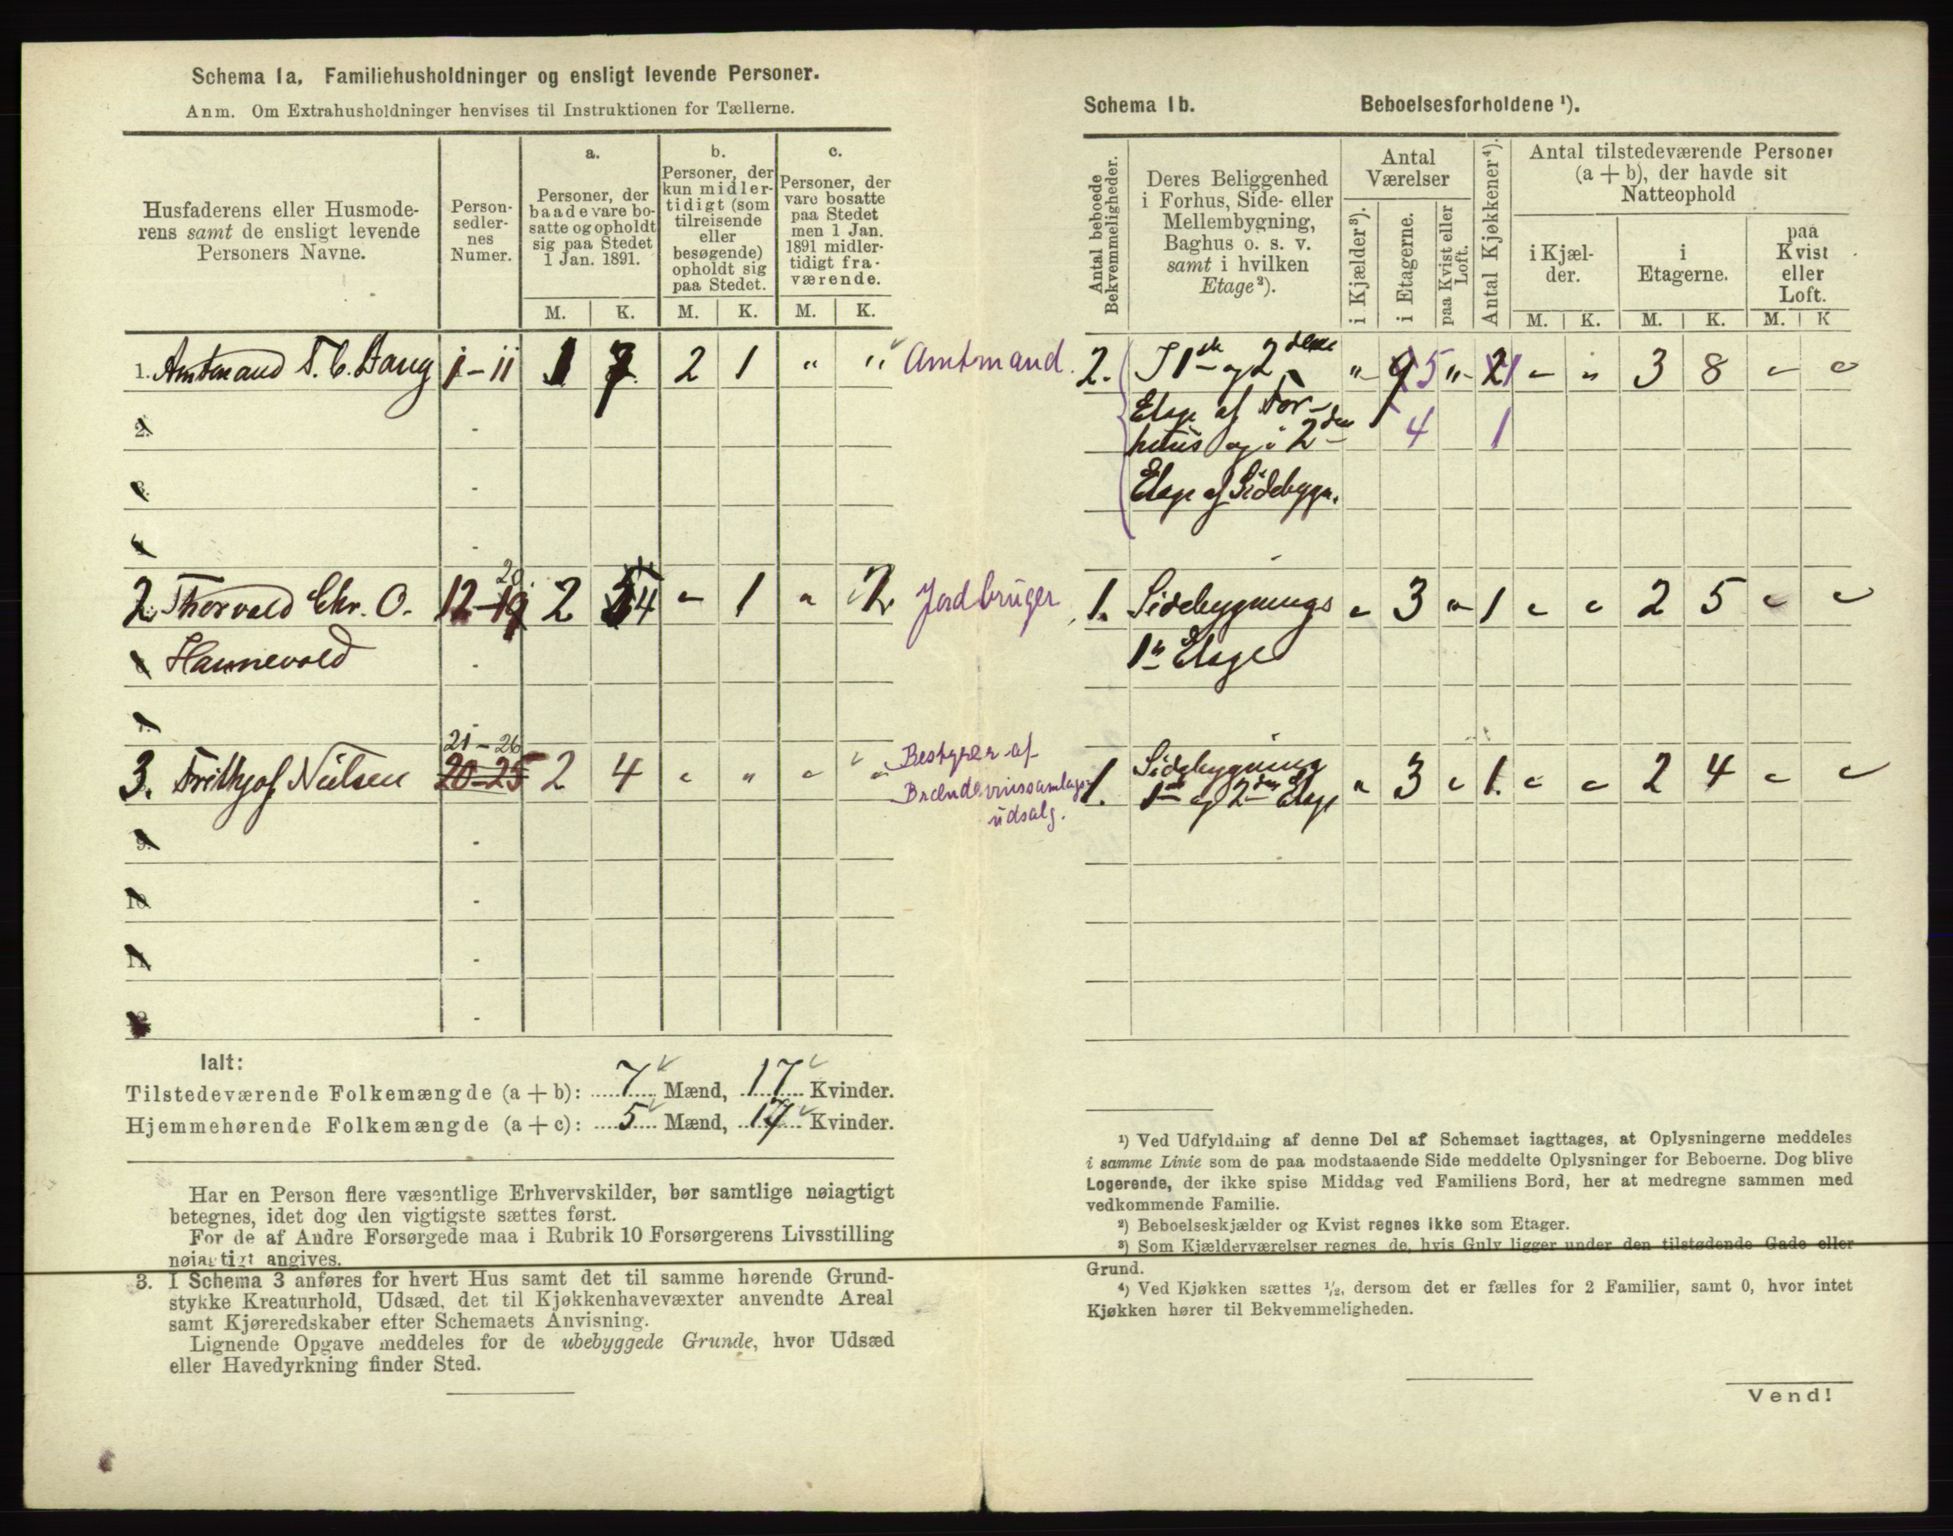 Schema 1a. Familiehusholdninger og ensligt levende Personer.
Anm. Om Extrahusholdninger henvises til Instruktionen for Tællerne.
Husfaderens eller Husmode-
rens samt de ensligt levende
Personers Navne.
Person-
sedler-
nes
Numer.
a.
Personer, der
baade vare bo-
satte og opholdt
sig paa Stedet
1 Jan. 1891.
b.
Personer, der
kun midler-
tidigt (som
tilreisende
eller
besøgende)
opholdt sig
paa Stedet.
c.
Personer, der
vare bosatte
paa Stedet
men 1 Jan.
1891 midler-
tidigt fra-
værende.
M. K. M. K. M. K.
1. Amtmand 1-11 1 7 2 1 " " Amtmand.
2.
3.
4.
20
2. Thorvald Chr. O. 12-19 2 4 - 1 " Jordbruger
6 Hannevold
7.
21-26
3. Frithjof Nielsen 20-25 2 4 " " " " Bestyrer af
Brændevinssamlags-
udsalg.
9.
10.
11.
12.
Ialt:
Tilstedeværende Folkemængde (a + b): 7 Mænd, 17 Kvinder.
Hjemmehørende Folkemængde (a + c): 5 Mænd, 17 Kvinder.
Har en Person flere væsentlige Erhvervskilder, bør samtlige nøiagtigt
betegnes, idet dog den vigtigste sættes først.
For de af Andre Forsørgede maa i Rubrik 10 Forsørgerens Livsstilling
nøiagtigt angives.
3. I Schema 3 anføres for hvert Hus samt det til samme hørende Grund-
stykke Kreaturhold, Udsæd, det til Kjøkkenhavevæxter anvendte Areal
samt Kjøreredskaber efter Schemaets Anvisning.
Lignende Opgave meddeles for de ubebyggede Grunde, hvor Udsæd
eller Havedyrkning finder Sted.
Schema 1b. Beboelsesforholdene ¹).
Antal beboede
Bekvemmeligheder.
Deres Beliggenhed
i Forhus, Side- eller
Mellembygning,
Baghus o. s. v.
samt i hvilken
Etage²).
Antal
Værelser
i Kjælder³).
i Etagerne.
paa Kvist eller
Loft.
Antal Kjøkkener⁴).
Antal tilstedeværende Personer
(a + b), der havde sit
Natteophold
i Kjæl-
der.
i
Etagerne.
paa
Kvist
eller
Loft.
M. K. M. K. M. K
2. I 1ste og 2den " 9 5 " 2 1 " " 3 8 " "
Etage af For-
huus og i 2den 4 1
Etage af Sidebygn.
1. Sidebygnings " 3 " 1 " " 2 5 " "
1ste Etage
1. Sidebygning
1ste og 2den Etage " 3 " 1. " " 2 4 " "
¹) Ved Udfyldning af denne Del af Schemaet iagttages, at Oplysningerne meddeles
i samme Linie som de paa modstaaende Side meddelte Oplysninger for Beboerne. Dog blive
Logerende, der ikke spise Middag ved Familiens Bord, her at medregne sammen med
vedkommende Familie.
²) Beboelseskjælder og Kvist regnes ikke som Etager.
³) Som Kjælderværelser regnes de, hvis Gulv ligger under den tilstødende Gade eller
Grund.
⁴) Ved Kjøkken sættes ¹/₂, dersom det er fælles for 2 Familier, samt 0, hvor intet
Kjøkken hører til Bekvemmeligheden.
Vend!